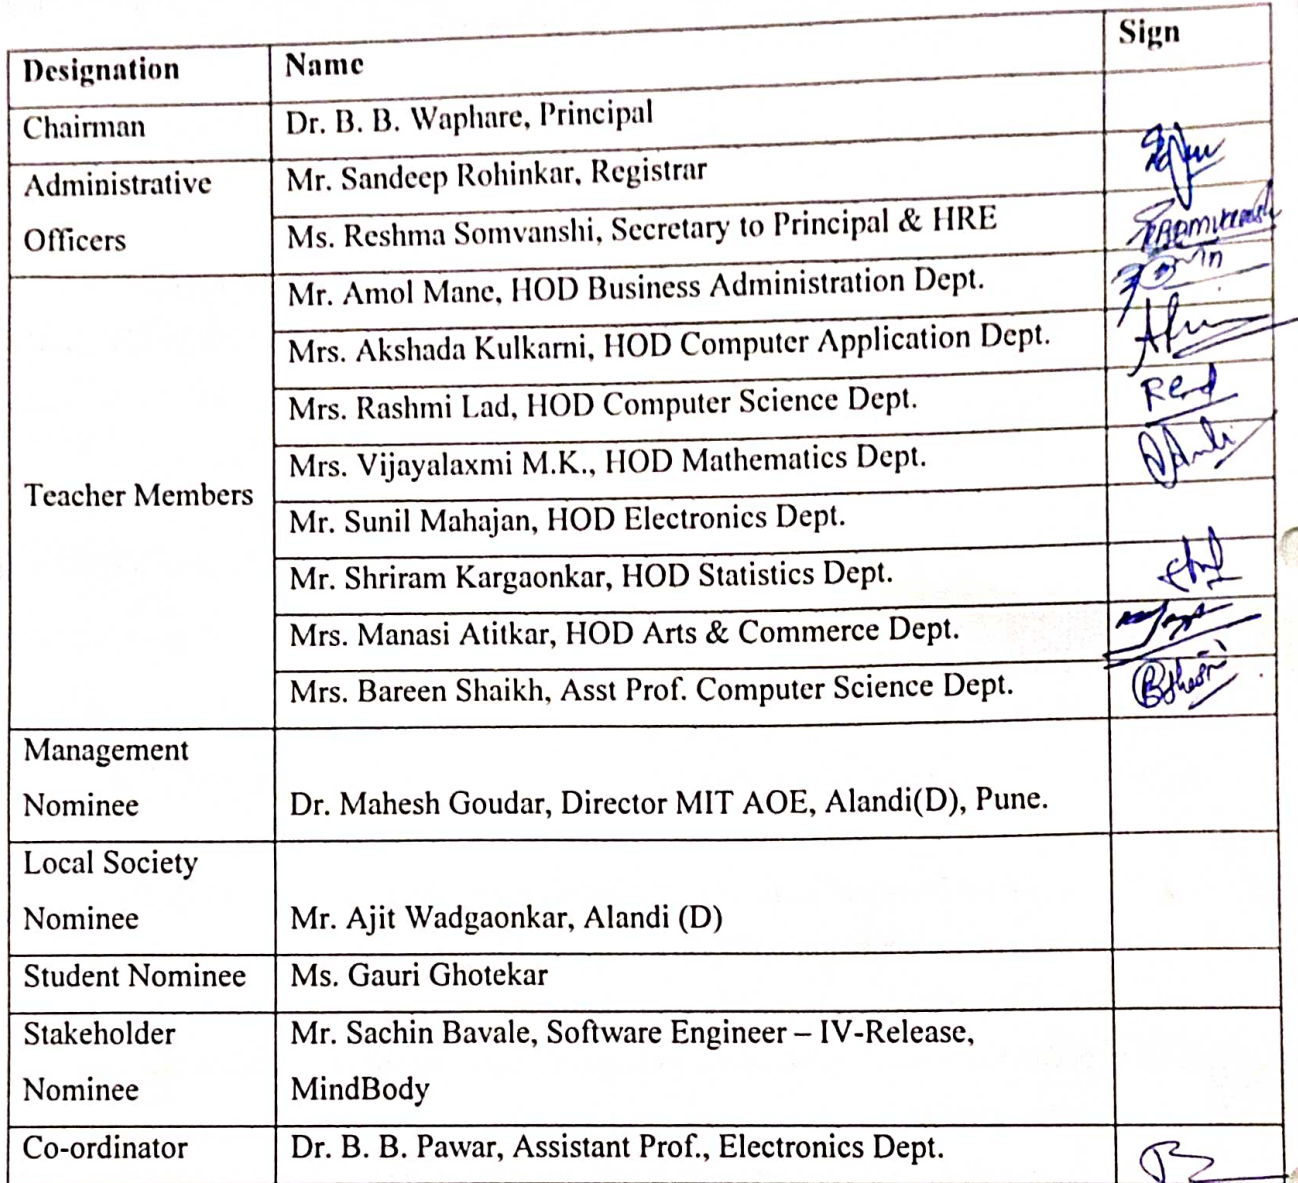 Designation Name Sign
Chairman Dr. B. B. Waphare, Principal
Administrative Officers Mr. Sandeep Rohinkar, Registrar
Ms. Reshma Somvanshi, Secretary to Principal & HRE
Teacher Members Mr. Amol Mane, HOD Business Administration Dept.
Mrs. Akshada Kulkarni, HOD Computer Application Dept.
Mrs. Rashmi Lad, HOD Computer Science Dept.
Mrs. Vijayalaxmi M.K., HOD Mathematics Dept.
Mr. Sunil Mahajan, HOD Electronics Dept.
Mr. Shriram Kargaonkar, HOD Statistics Dept.
Mrs. Manasi Atitkar, HOD Arts & Commerce Dept.
Mrs. Bareen Shaikh, Asst Prof. Computer Science Dept.
Management
Nominee Dr. Mahesh Goudar, Director MIT AOE, Alandi(D), Pune.
Local Society
Nominee Mr. Ajit Wadgaonkar, Alandi (D)
Student Nominee Ms. Gauri Ghotekar
Stakeholder Mr. Sachin Bavale, Software Engineer – IV-Release,
Nominee MindBody
Co-ordinator Dr. B. B. Pawar, Assistant Prof., Electronics Dept.